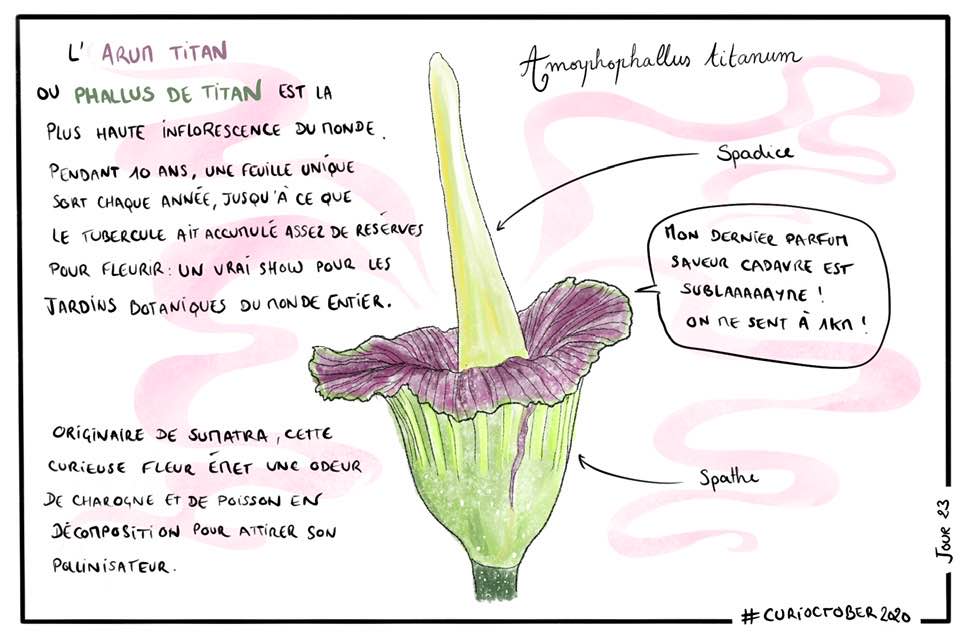 L'ARUM TITAN
OU PHALLUS DE TITAN EST LA
PLUS HAUTE INFLORESCENCE DU MONDE.
PENDANT 10 ANS, UNE FEUILLE UNIQUE
SORT CHAQUE ANNÉE, JUSQU'À CE QUE
LE TUBERCULE AIT ACCUMULÉ ASSEZ DE RESÉRVES
POUR FLEURIR : UN VRAI SHOW POUR LES
JARDINS BOTANIQUES DU MONDE ENTIER.
ORIGINAIRE DE SUMATRA, CETTE
CURIEUSE FLEUR ÉMET UNE ODEUR
DE CHAROGNE ET DE POISSON EN
DÉCOMPOSITION POUR ATTIRER SON
POLLINISATEUR.
Amorphophallus titanum
Spadice
MON DERNIER PARFUM
SAVEUR CADAVRE EST
SUBLAAAAAYME !
ON ME SENT À 1KM !
Spathe
JOUR 23
#CURIOCTOBER2020